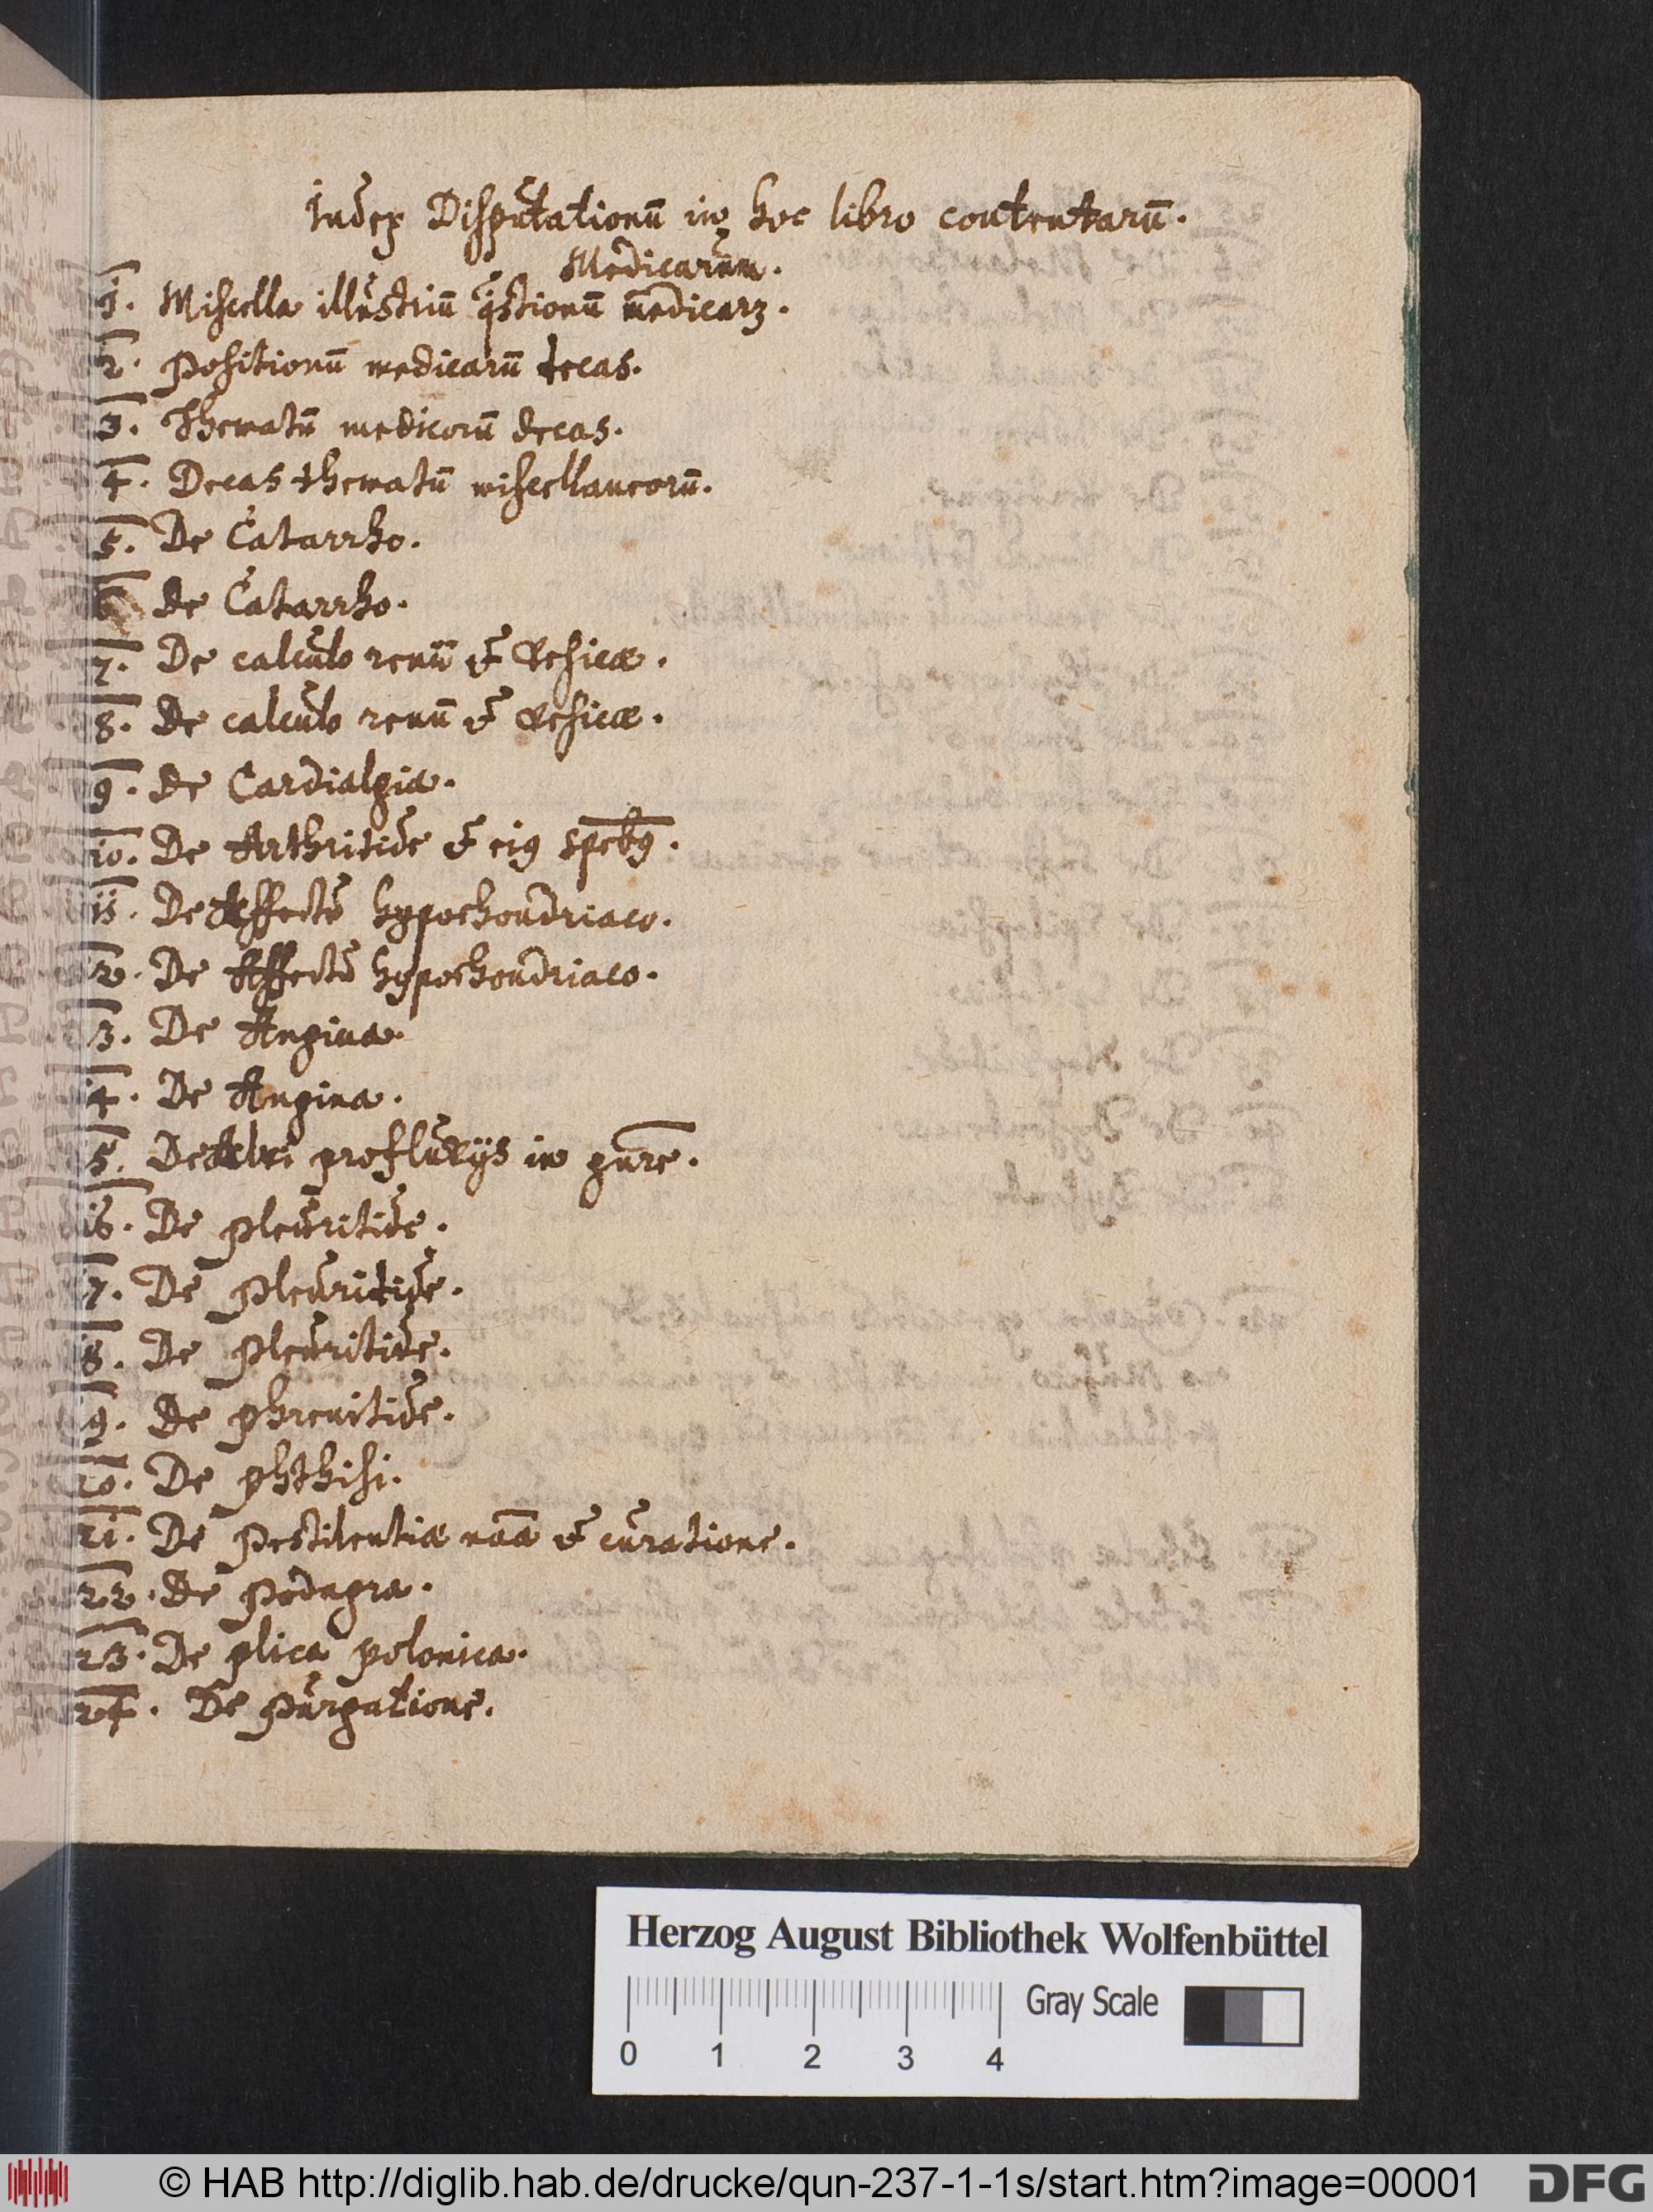 Index Disputationū in hoc libro contentarū.
Medicarum.
1. Miscella illustriū qstionū medicarꝫ.
2. Positionū medicarū decas.
3. Thematū medicorū decas.
4. Decas thematū miscellaneorū.
5. De Catarrho.
6 de Catarrho.
7. De calculo renū & vesicæ.
8. De calculo renū & vesicæ.
9. de Cardialgia.
10. De Arthritide & eiꝰ spebꝰ.
11. De Affectu hypochondriaco.
12. De Affectu hypochondriaco.
13. De Angina.
14. De Angina.
15. De Alvi profluviis in gnre.
16. De Pleuritide.
17. De Pleuritide.
18. De Pleuritide.
19. de phrenitide.
20. De phthisi.
21. De Pestilentiæ naā & curatione.
22. de Podagra.
23. De plica polonica.
24. De Purgatione.
Herzog August Bibliothek Wolfenbüttel
Gray Scale
0 1 2 3 4
© HAB http://diglib.hab.de/drucke/qun-237-1-1s/start.htm?image=00001
DFG